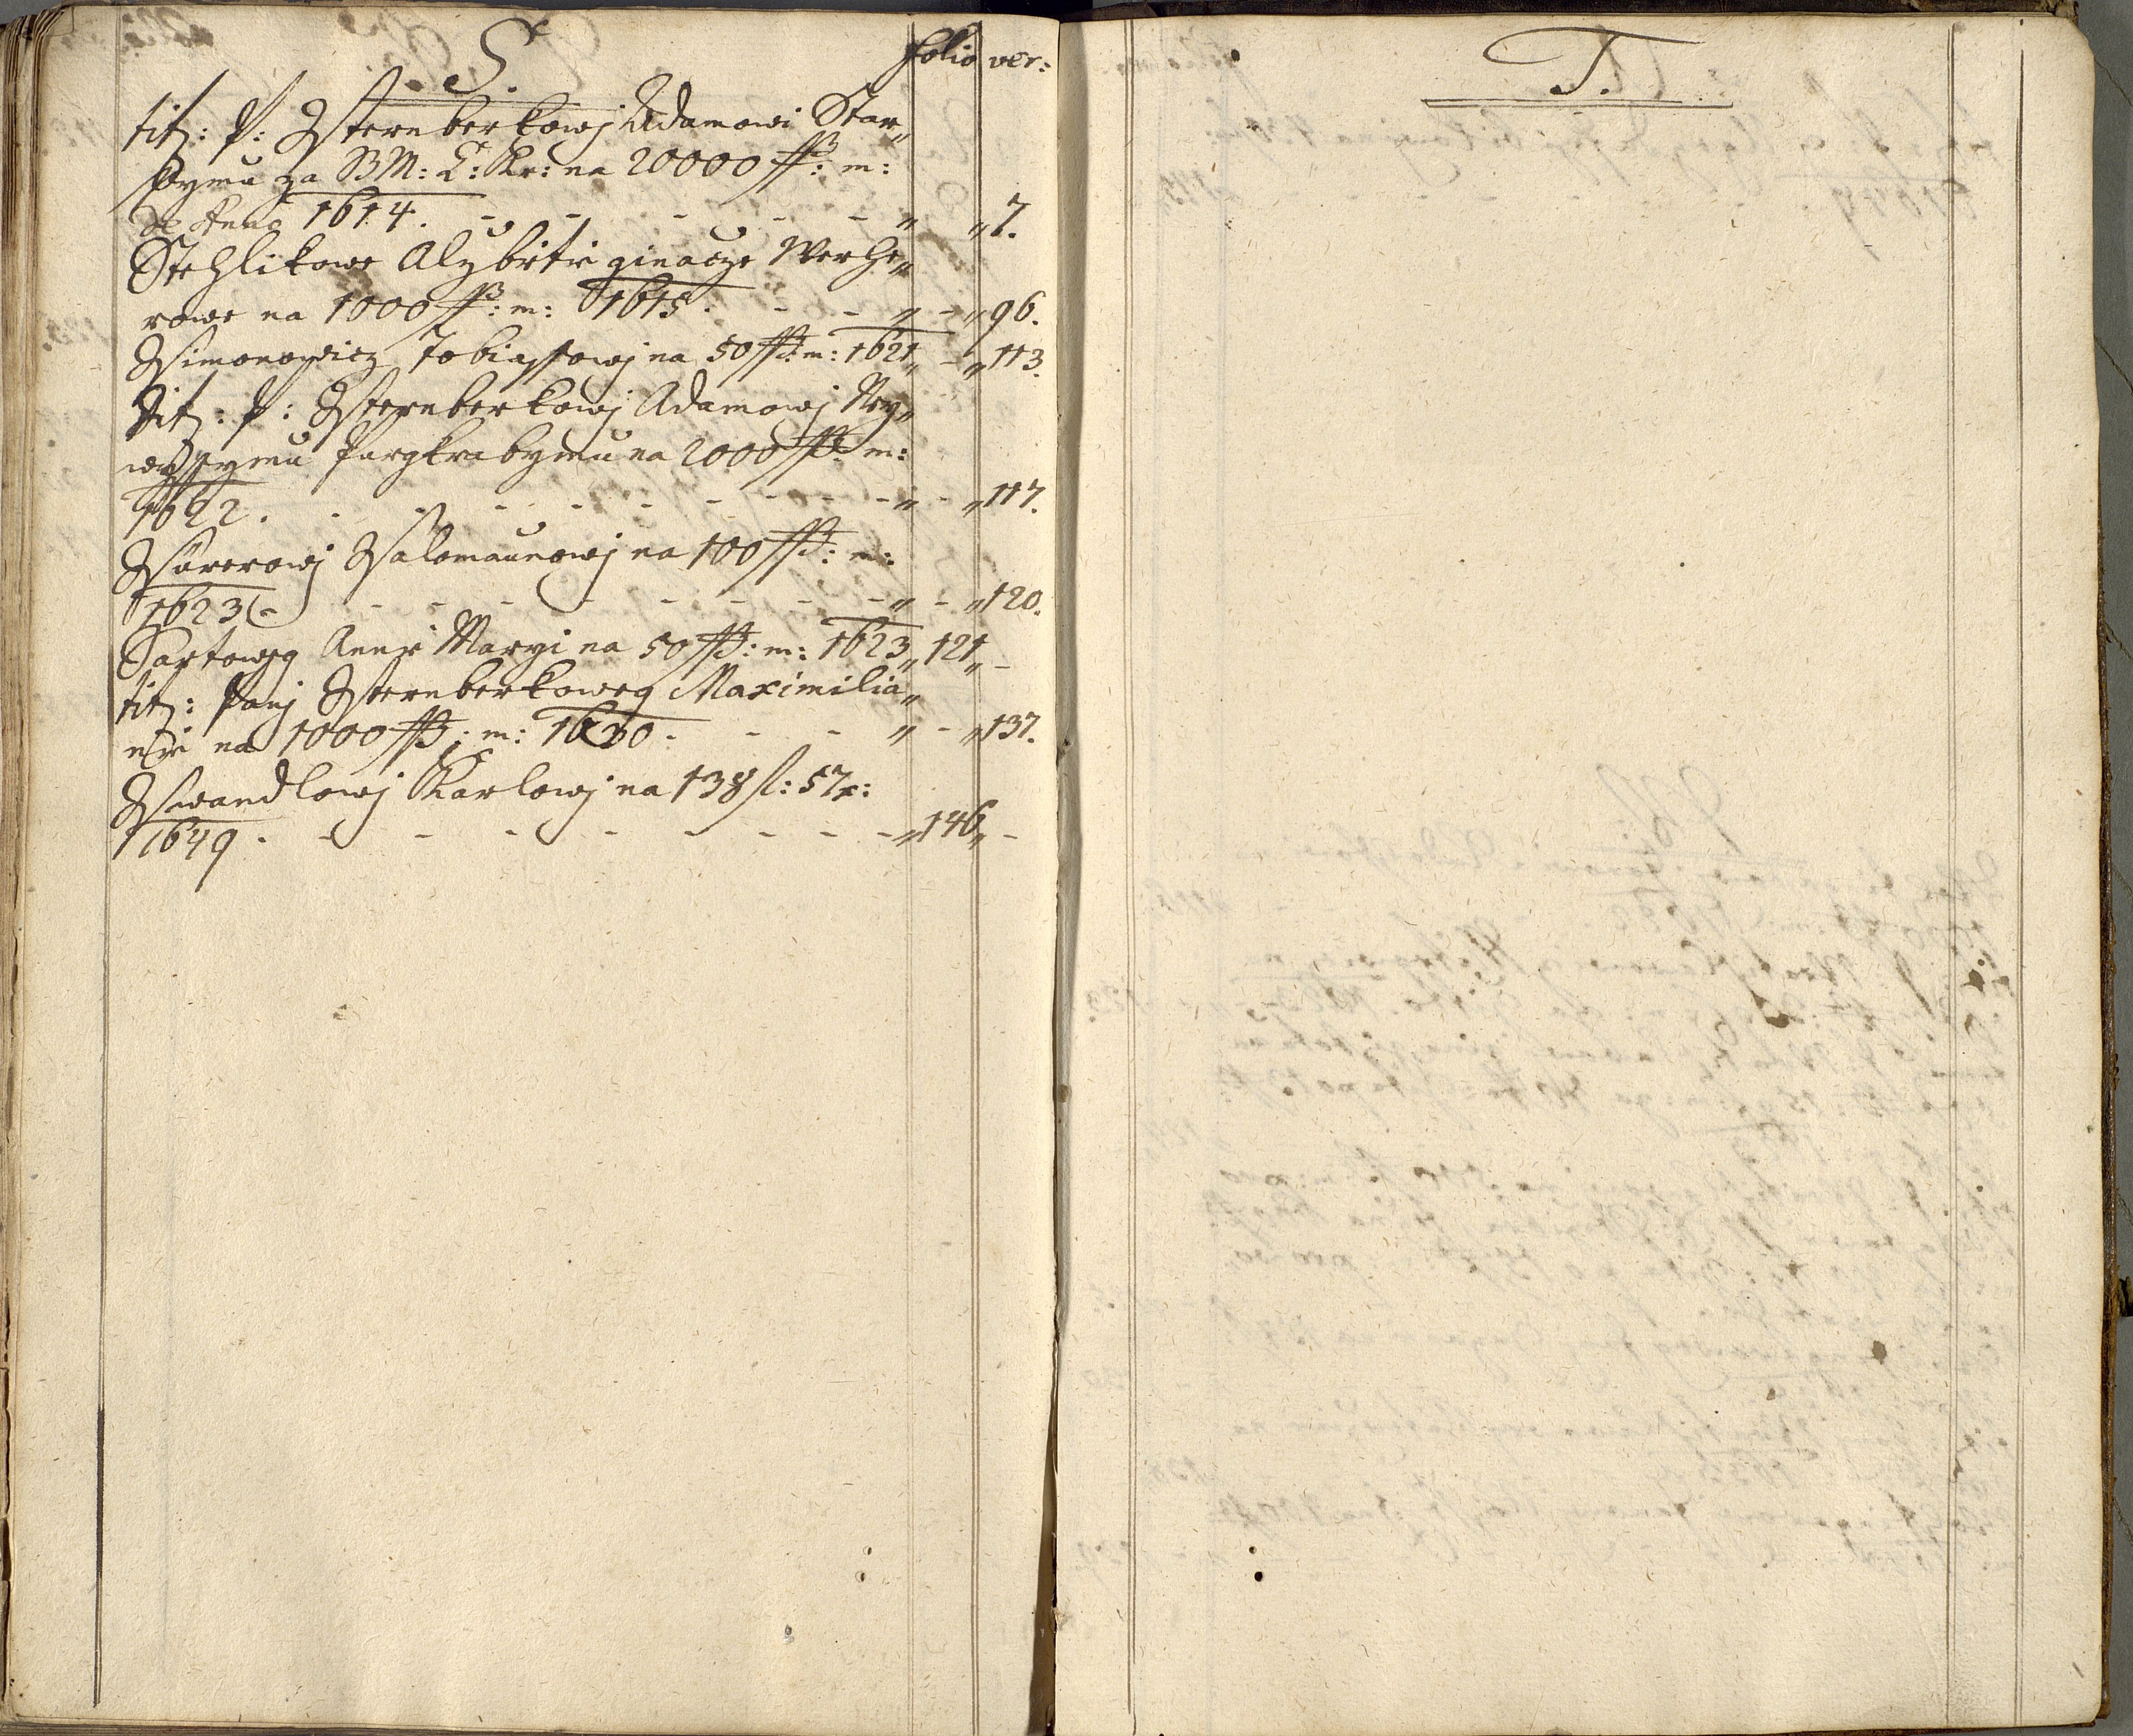 S. folio ver:
tit: P: Ssternberkowj Adamowi Star„
ssymu za B M: C: Kr: na 20000 ß: m:
de Anno 1614. - - - - - „ „ 7.
Stehlikowe Alzbietie ginacze Werhe„
rowe na 1000 ß: m: 1615. - - „ - „ 96.
Ssimonowicz Tobiassowj na 50 ß: m: 1621 „ - „ 113.
Tit: P: Ssternberkowj Adamowj Ney„
wyssymu Purgkrabymu na 2000 ß: m:
1622. - - - - - - - „ - „ 117.
Ssalomaunowj na 100 ß: m:
1623 - - - - - - - - „ - „ 120.
Annie Maryi na 50 ß: m: 1623 „ 121 „ -
tit: Panj Ssternberkoweg Maximilia„
nie na 1000 ß: m: 1630. - - „ - „ 137.
Sswandlowj Karlowj na 138 fl: 57 x:
1649. - - - - - - - - „ 146 „ -
T.